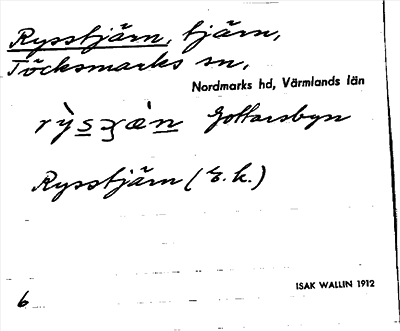 Rysstjärn, tjärn,
Töcksmarks sn,
Nordmarks hd, Värmlands län
Gottarsbyn
Rysstjärn (E.k.)
ISAK WALLIN 1912
6